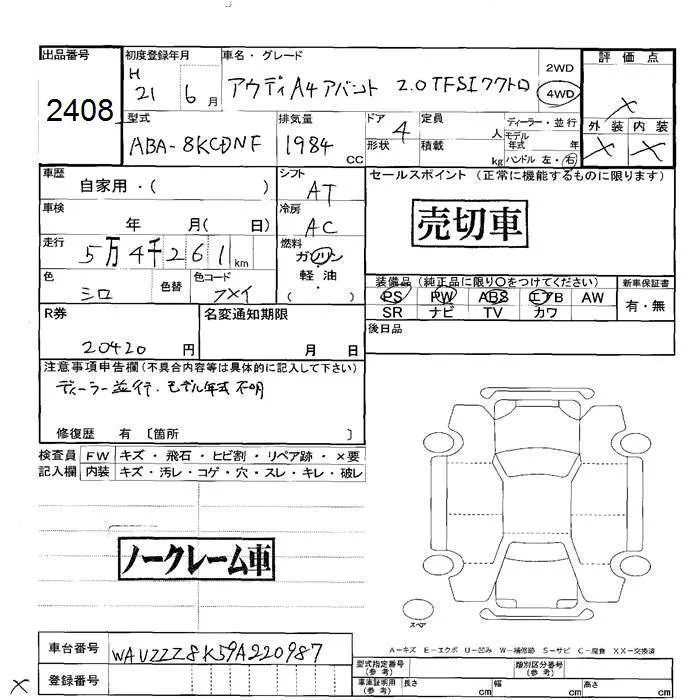 出品番号 初度登録年月 車名・グレード 評価点
2408 H 21 6月 アウディA4アバント 2.0TFSIクワトロ 2WD 4WD ×
型式 排気量 ドア 定員 ディーラー・並行 外装 内装
ABA-8KCDNF 1984 CC 4 人 モデル年式 年 × ×
形状 積載 kg ハンドル 左・右
車歴 シフト セールスポイント (正常に機能するものに限ります)
自家用・( ) AT
車検 冷房 売切車
年 月( 日) AC
走行 燃料
5万4千261km ガソリン
色 色替 色コード 軽油 装備品 (純正品に限り○をつけてください) 新車保証書
シロ フメイ ( ・ ) PS PW ABS エアB AW 有・無
R券 名変通知期限 SR ナビ TV カワ
20420 円 月 日 後日品
注意事項申告欄(不具合内容等は具体的に記入して下さい)
ディーラー並行.モデル年式不明
修復歴 有 〔箇所 〕
検査員 FW キズ・飛石・ヒビ割・リペア跡・×要
記入欄 内装 キズ・汚レ・コゲ・穴・スレ・キレ・破レ
ノークレーム車
スペア
A-キズ E-エクボ U-凹み W-補修跡 S-サビ C-腐食 XX-交換済
車台番号 WAVZZZ8K59A220987 型式指定番号 (参考) 類別区分番号 (参考)
× 登録番号 車庫証明用 (参考) 長さ cm 幅 cm 高さ cm